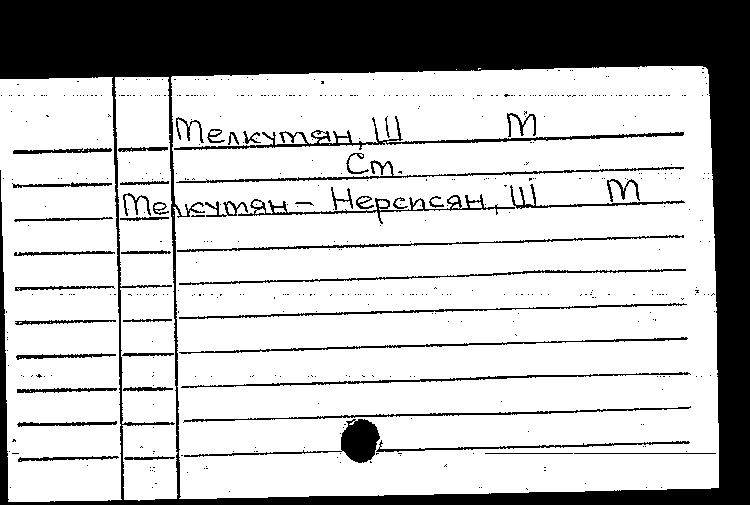 Мелкумян, Ш М
Ст.
Мелкумян - Нерсисян, Ш М